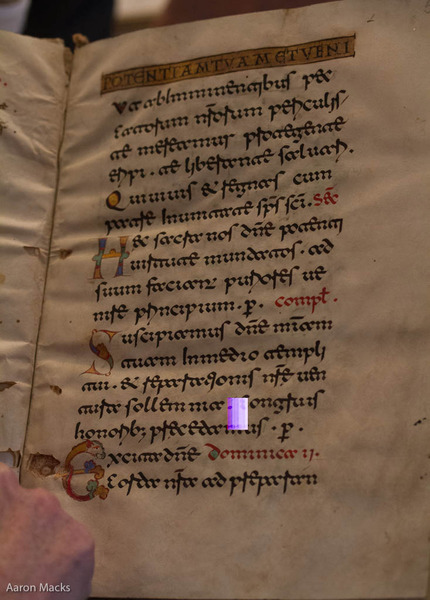 POTENTIAM TUAM ET VENI
Ut ab imminentibus pec
catorum nrorum periculis
te mereamur protegente
eripi. te liberante saluari.
Qui uiuis & regnas cum
patre in unitate sps sci. Sec
Hec sacra nos dne potenti
uirtute mundatos. ad
suum faciant puriores ue
nire principium. p. compl.
Suscipiamus dne miam
tuam in medio templi
tui. & reparationis nre uen
tura sollemnia
honorib; precedamus. p.
Excita dne dominica ii.
corda nra ad preparan